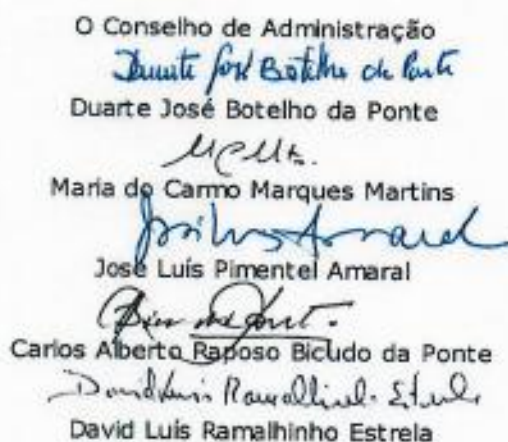 O Conselho de Administração
Duarte José Botelho da Ponte
Duarte José Botelho da Ponte
Maria do Carmo Marques Martins
José Luís Pimentel Amaral
José Luís Pimentel Amaral
Carlos Alberto Raposo Bicudo da Ponte
David Luis Ramalhinho Estrela
David Luís Ramalhinho Estrela